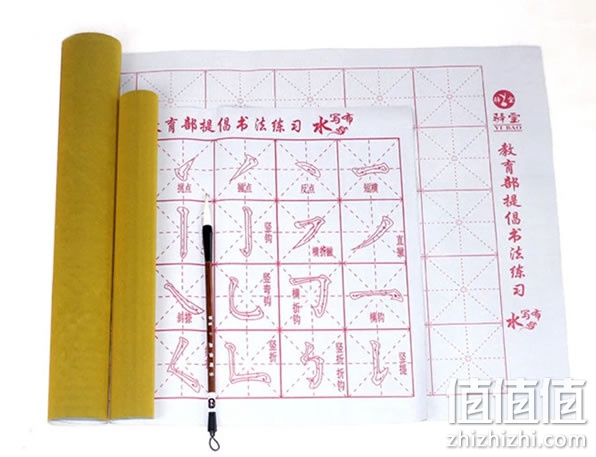 教育部提倡书法练习 水写布
YI BAO
教育部提倡书法练习 水写布
撇点 反点 短横
竖钩 横折撇 直撇
斜捺 竖弯钩 横折钩 横钩
竖折 竖折折钩 竖提
值值值
zhizhizhi.com